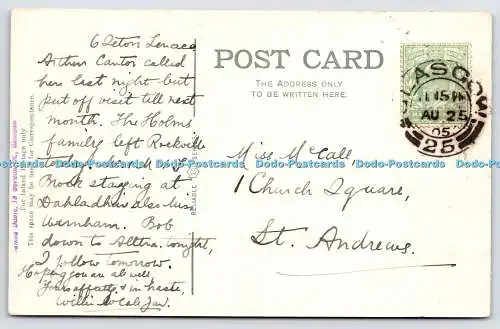 6 Eton Terrace
Arthur Cantor called
here last night but
put off visit till next
month. The Holms
family left Rockville
today.
Brook staying at
also Mrs
Warnham. Bob
down to tonight,
I follow tomorrow.
Hoping you are all well,
Yours affectly & in haste,
Willie McCall Jnr.
for Inland Postage only.
This space may be used for Correspondence.
RELIABLE
POST CARD
THE ADDRESS ONLY
TO BE WRITTEN HERE.
GLASGOW
11 15 PM
AU 25
05
25
Miss McCall
1 Church Square,
St. Andrews.
Dodo-Postcards Dodo-Postcards Dodo-Postcards Dodo-Postcards Dodo-Postcards Dodo-Postcards